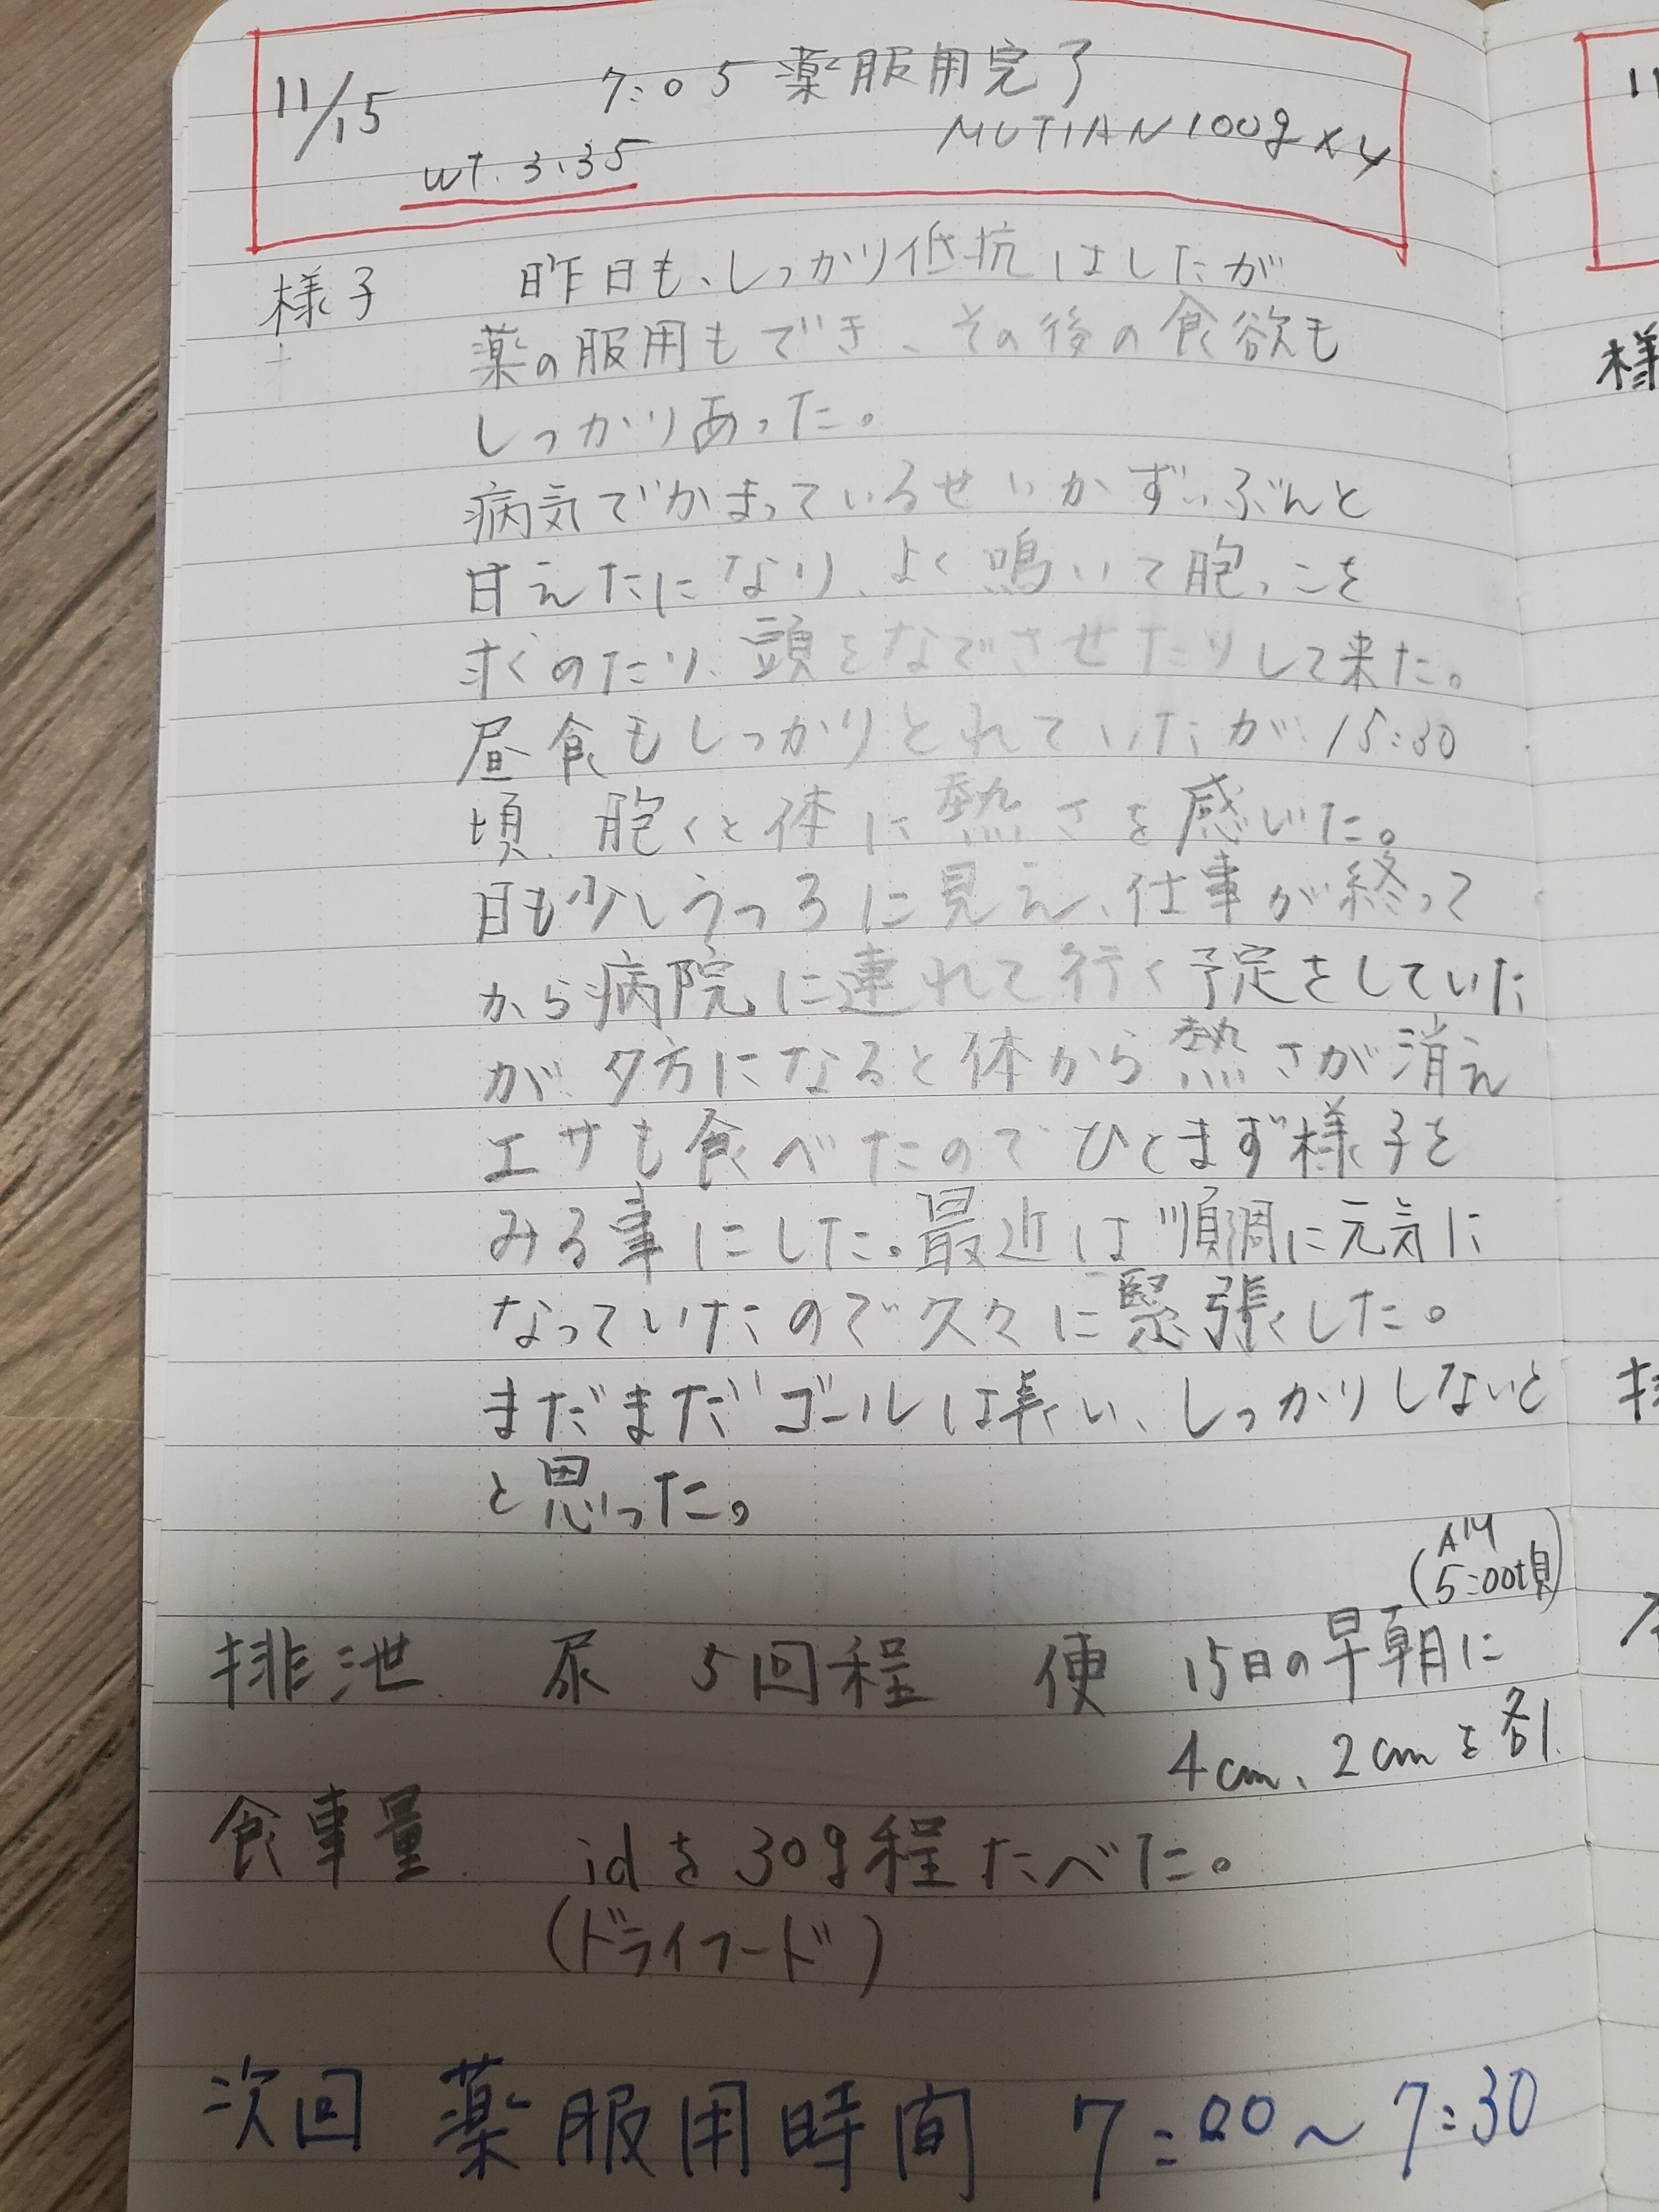 11/15 7:05 薬服用完了
wt. 3.35 MUTIAN 100g×4
様子 昨日も、しっかり低抗はしたが
薬の服用もでき、その後の食欲も
しっかりあった。
病気でかまっているせいかずいぶんと
甘えたになり、よく鳴いて胞っこを
求めたり、頭をなでさせたりして来た。
昼食もしっかりとれていたが 15:30
頃、胞くと体に熱さを感じた。
目も少しうつろに見え、仕事が終って
から病院に連れて行く予定をしていた
が、夕方になると体から熱さが消え
エサも食べたのでひとまず様子を
みる事にした。最近は順調に元気に
なっていたので久々に緊張した。
まだまだゴールは長い、しっかりしないと
と思った。
(AM 5:00頃)
排泄 尿 5回程 便 15日の早朝に
4cm、2cmを各1.
食事量 idを30g程たべた。
(ドライフード)
次回 薬服用時間 7:00~7:30
11
様